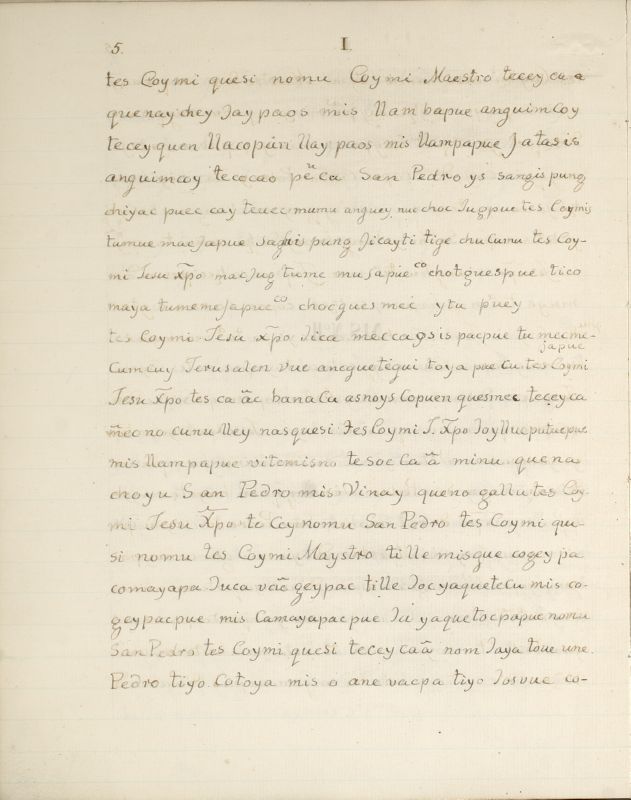 5. I.
tes Coymi quesi nomu Coymi Maestro tecey ca a
quenay chey Jay paos mis Nam bapue anguimcoy
tecey quen Nacopân Nay paos mis Nampapue Jatasis
anguimcoy tececao San Pedro ys sangis pung
chiyac puec cay teuec mumu anguey nuechoc Jugpue tes Coymis
tumue macJapue pung Jicayti tige chucumu tes Coy-
mi Jesu Xp̃o macJug tumc muJapue co chotguespue tico
maya tumemeJapue co chocgues mec ytu puey
tes Coymi Jesu Xp̃o Jica meccaosis pacpue tu mecme-
Japue
Cumcuy Jerusalen vue ancguetegui toya pue Cu tes Coymi
Jesu Xp̃o tes ca ãc banaCu asnoys Copuen quesmec tecey ca
m̃ec no cunu Ney nasquesi tes Coymi J. Xp̃o
mis Nampapue vitemisno te soc Ca ã minu quena
choyu San Pedro mis Vinay queno gallu tes Coy-
mi Jesu Xp̃o te Cey nomu San Pedro tes Coymi que-
si nomu tes Coymi Maystro tille misgue cogey pa
comayapa Juca geypac tille Jocyaquetecu mis co-
geypacpue mis Camayapacpue Jci yaquetocpapue nomu
San Pedro tes Coymi quesi tecey ca ã nom Jaya toue une.
Pedro tiyo Cotoya mis o ane vaepa tiyo Josvue co-